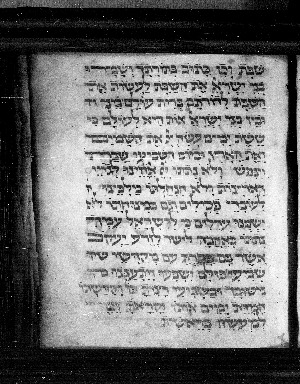 שבת וכן כתוב בתורתך ושמרו
בני ישראל את השבת לעשות את
השבת לדורתם ברית עולם ביני ובין
בני ישראל אות היא לעולם כי
ששת ימים עשה יי את השמים
ואת הארץ וביום השביעי שבת
וינפש ולא נתתו יי אלהינו לגויי
הארצות ולא הנחלתו מלכינו
לעובדי פסילים גם במנוחתו לא
ישכנו ערלים כי לישראל עמך
נתתו באהבה לזרע יעקב
אשר בם בחרת עם מקדשי
שביעי כולם ישבעו ויתענגו
מטובך ובשביעי רצית בו וקידשתו
חמדת ימים אותו קראת
למעשה בראשית